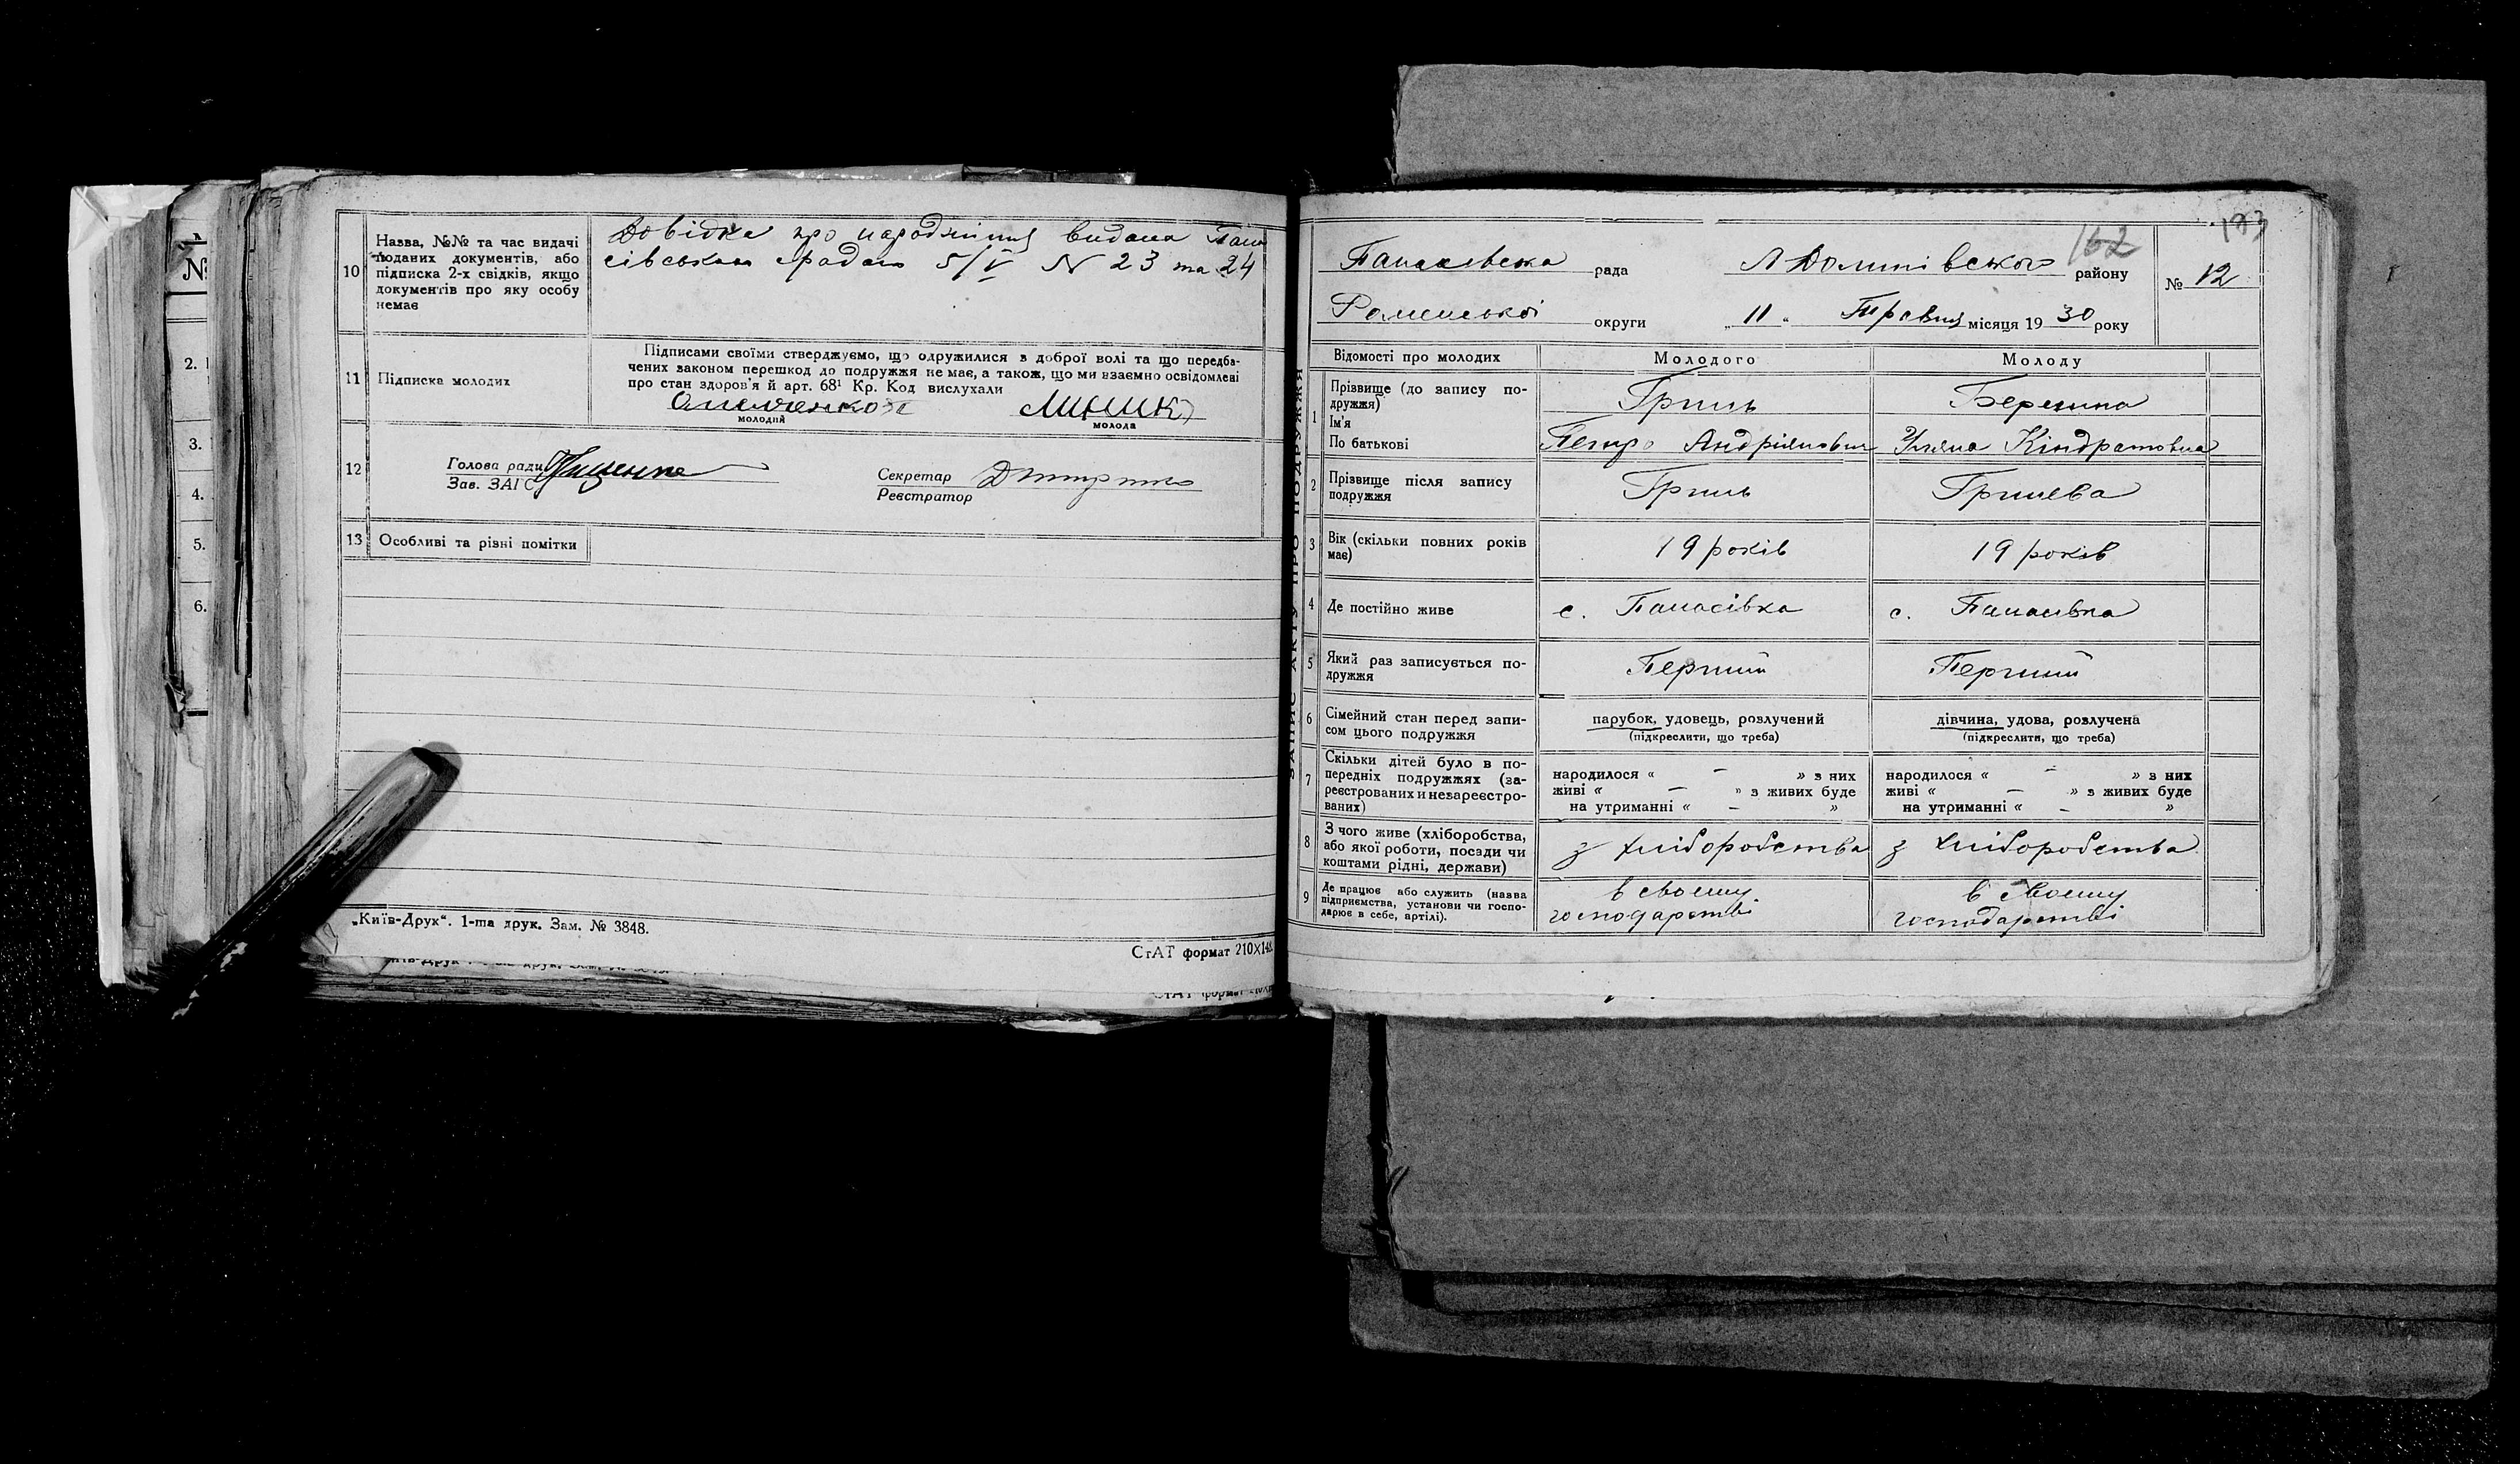 10
Назва, №№ та час видачі
поданих документів, або
підписка 2-х свідків, якщо
документів про яку особу
немає
Довідка про народження видана Пана
сівською срадою 5/V N 23 та 24
11
Підписка молодих
Підписами своїми стверджуємо, що одружилися з доброї волі та що передба-
чених законом перешкод до подружжя не має, а також, що ми взаємно освідомлені
про стан здоров'я й арт. 68¹ Кр. Код вислухали
молодий
молода
12
Голова ради
Зав. ЗАГС
Секретар
Реєстратор
13
Особливі та різні помітки
„Київ-Друк“. 1-та друк. Зам. № 3848.
СтАТ формат 210×148
№
2.
3.
4.
5.
6.
ЗАПИС АКТУ ПРО ПОДРУЖЖЯ
162
Панасівська рада
району
№ 12
Роменської округи „ 11 “ Травня місяця 19 30 року
Відомості про молодих
Молодого
Молоду
1
Прізвище (до запису по-
дружжя)
Ім'я
По батькові
Гриль
Петро Андріянович
Уляна Кіндратовна
2
Прізвище після запису
подружжя
Гриль
Грилева
3
Вік (скільки повних років
має)
19 років
19 років
4
Де постійно живе
с. Панасівка
с. Панасівка
5
Який раз записується по-
дружжя
Перший
Перший
6
Сімейний стан перед запи-
сом цього подружжя
парубок, удовець, розлучений
(підкреслити, що треба)
дівчина, удова, розлучена
(підкреслити, що треба)
7
Скільки дітей було в по-
передніх подружжях (за-
реєстрованих и незареєстро-
ваних)
народилося « – » з них
живі « – » з живих буде
на утриманні « – »
народилося « – » з них
живі « – » з живих буде
на утриманні « – »
8
З чого живе (хліборобства,
або якої роботи, посади чи
коштами рідні, держави)
з хліборобства
з хліборобства
9
Де працює або служить (назва
підприємства, установи чи госпо-
дарює в себе, артілі).
в своєму
господарстві
в своєму
господарстві